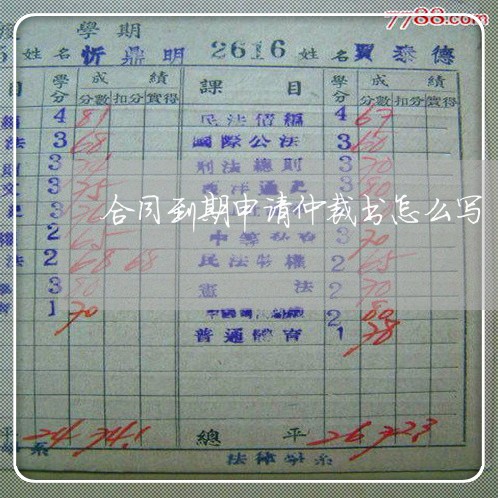 7788.com
學期
5 姓名 忻鼎明 2616 姓名 賈泰德
目 學分 成績 課目 學分 成績
分數 扣分 實得 分數 扣分 實得
4 81 民法債編 4 67
法 3 68 國際公法 3 60
3 刑法總則 3 70
3 75 西洋通史 3 80
合同到期申请仲裁书怎么写
2 65 3 70
法 2 68 68 民法物權 2 65
3 80 憲法 2 70
1 70 2 80
普通體育 1 78
平 24 74.1 總平 26 72.3
系 法律學系